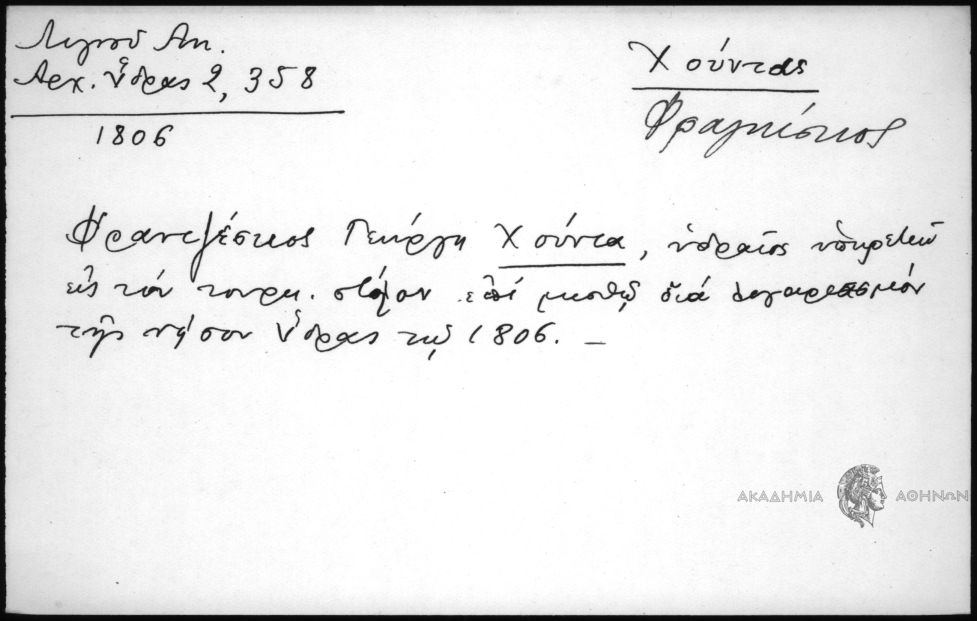 Λιγνοῦ Αντ.
Αρχ. Ὕδρας 2, 358
1806
Χούντας
Φραγκίσκος
Φραντζέσκος Γεώργη Χούντα, ὑδραῖος ὑπηρετῶν
εἰς τόν τουρκ. στόλον ἐπί μισθῷ διά λογαριασμόν
τῆς νήσου Ὕδρας τῷ 1806. –
ΑΚΑΔΗΜΙΑ ΑΘΗΝΩΝ